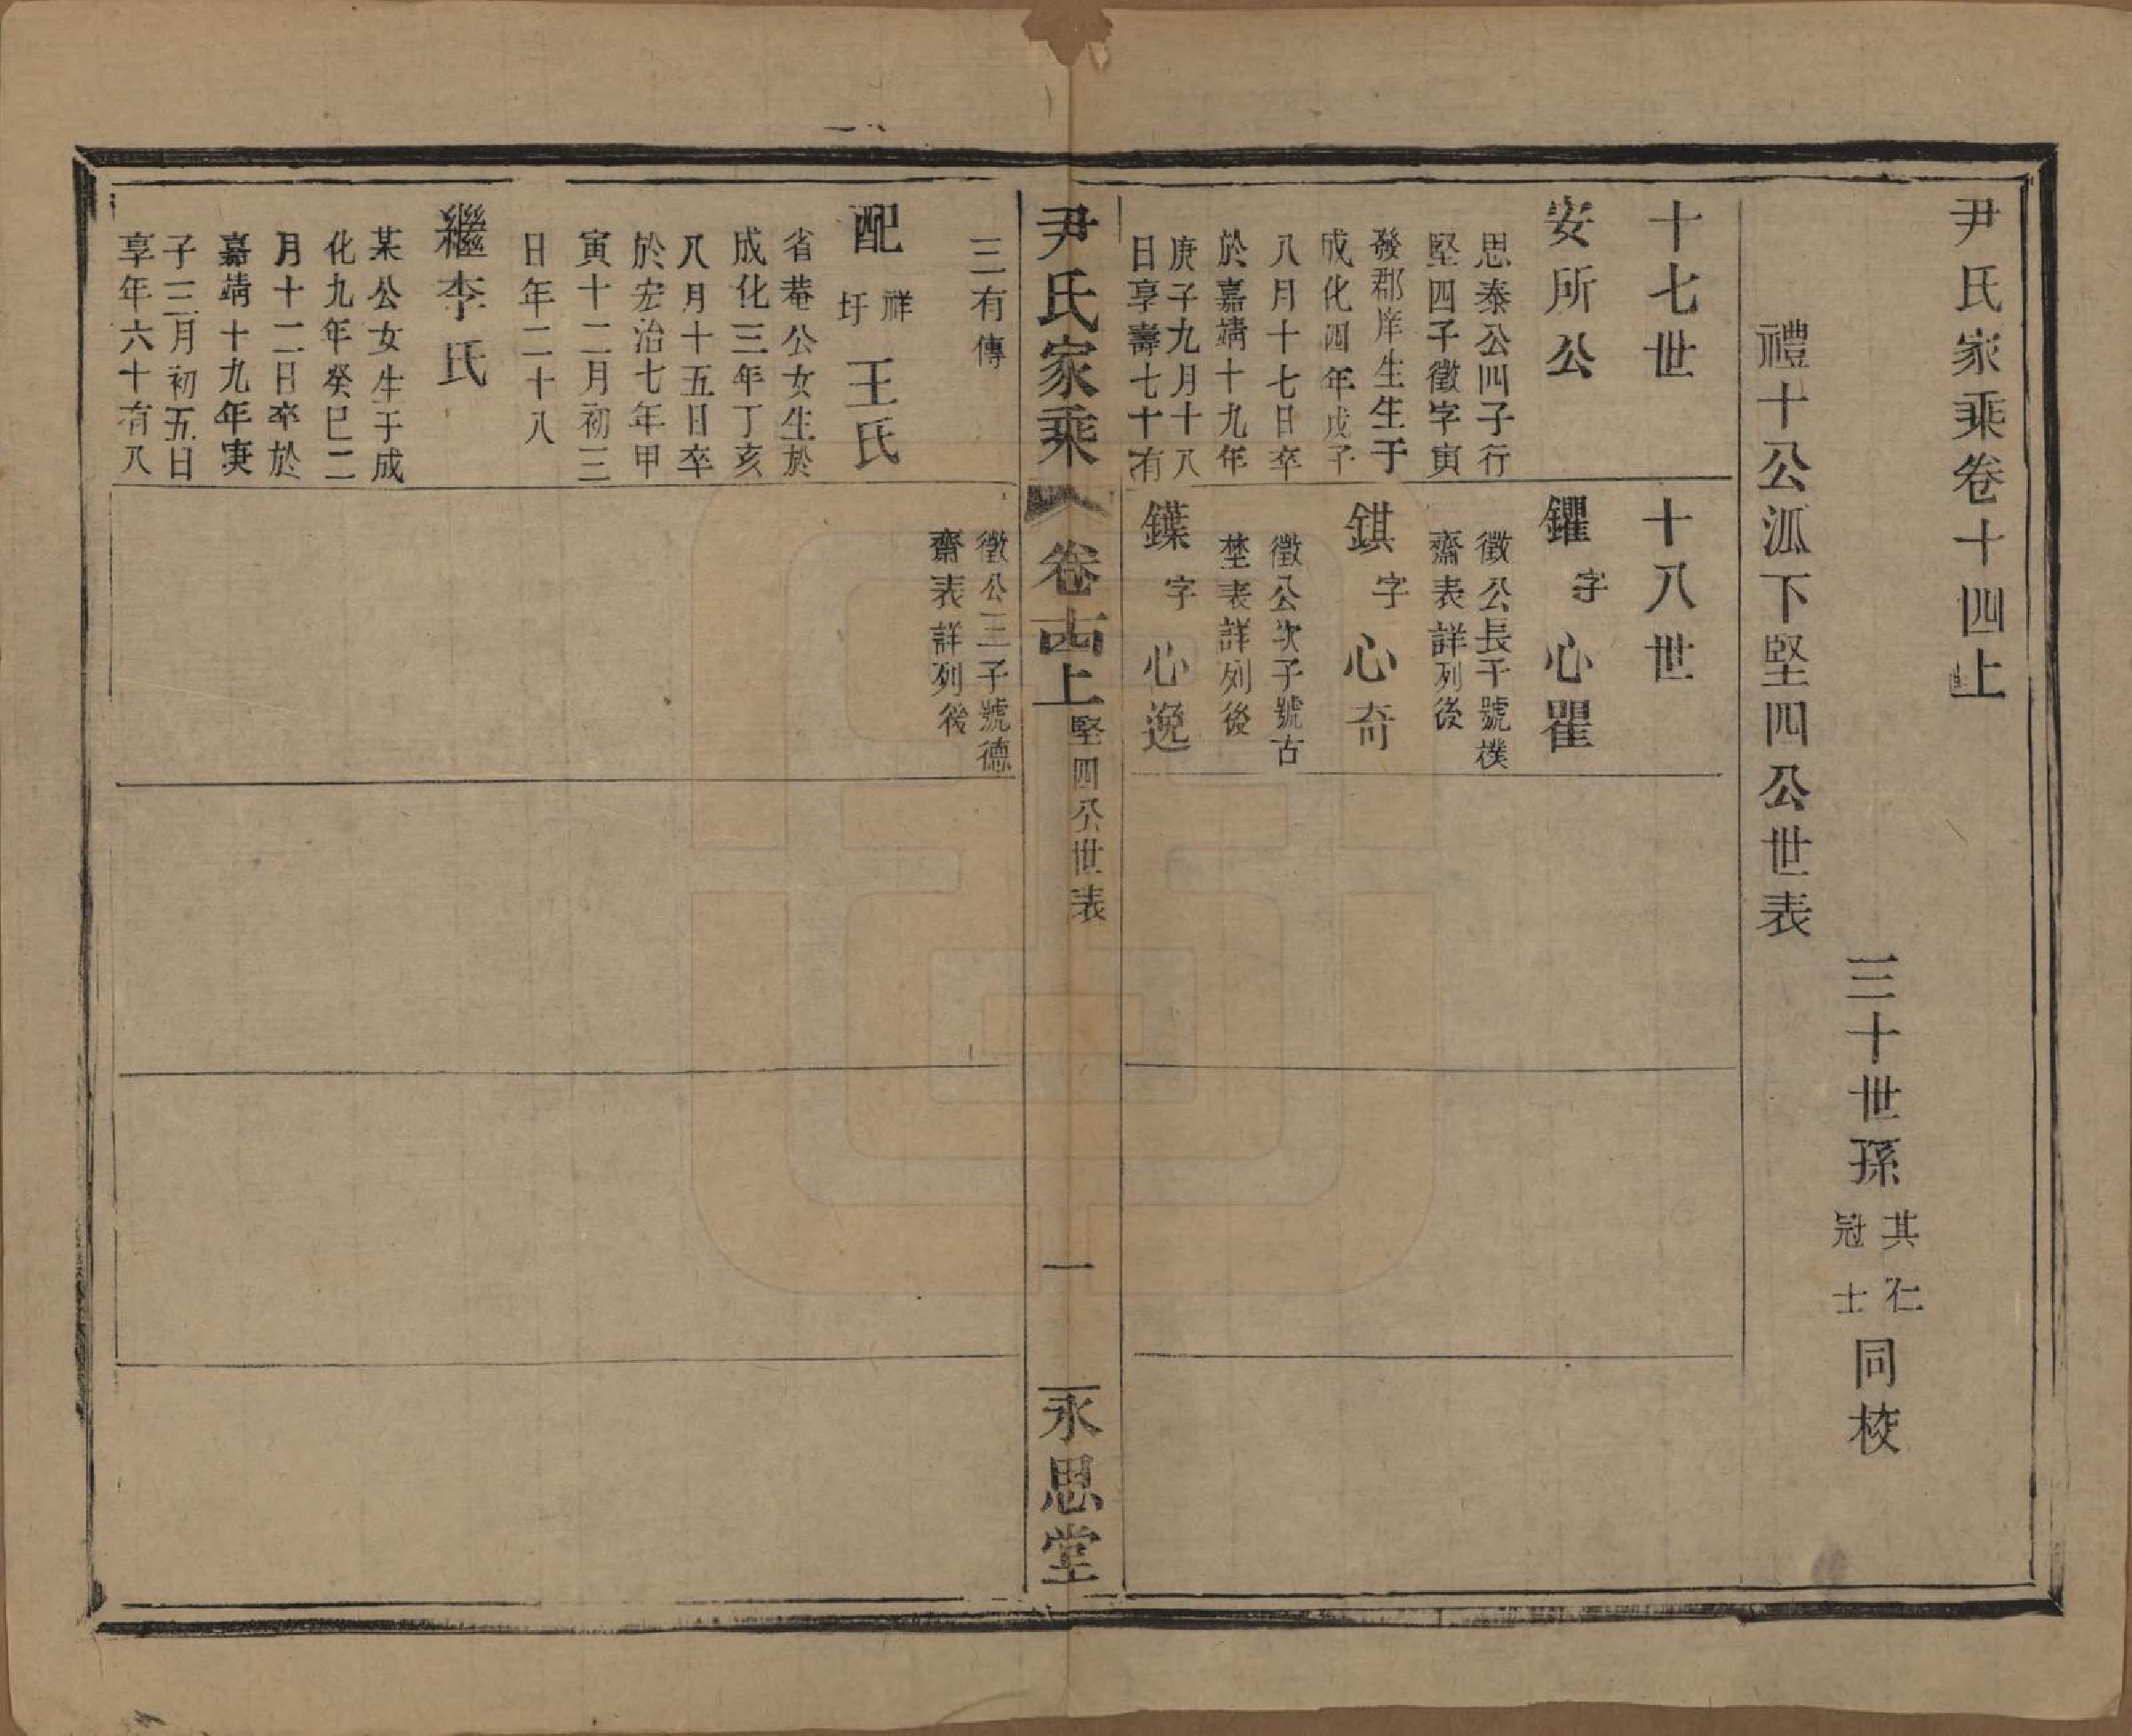 尹氏家乘卷十四上
三十世孫其仁冠士同校
禮十公泒下堅四公世表
十七世
安所公
思泰公四子行
堅四子徵字寅
發郡庠生生于
成化四年戊子
八月十七日卒
於嘉靖十九年
庚子九月十八
日享壽七十有
十八世
鑺字心瞿
徵公長子號樸
齋表詳列後
錤字心奇
徵公次子號古
埜表詳列後
鏶字心逸
尹氏家乘
卷十四上
堅四公世表
一
永思堂
三有傳
配祥圩王氏
省菴公女生於
成化三年丁亥
八月十五日卒
於宏治七年甲
寅十二月初三
日年二十八
繼李氏
某公女生于成
化九年癸巳二
月十二日卒於
嘉靖十九年庚
子三月初五日
享年六十有八
徵公三子號德
齋表詳列後